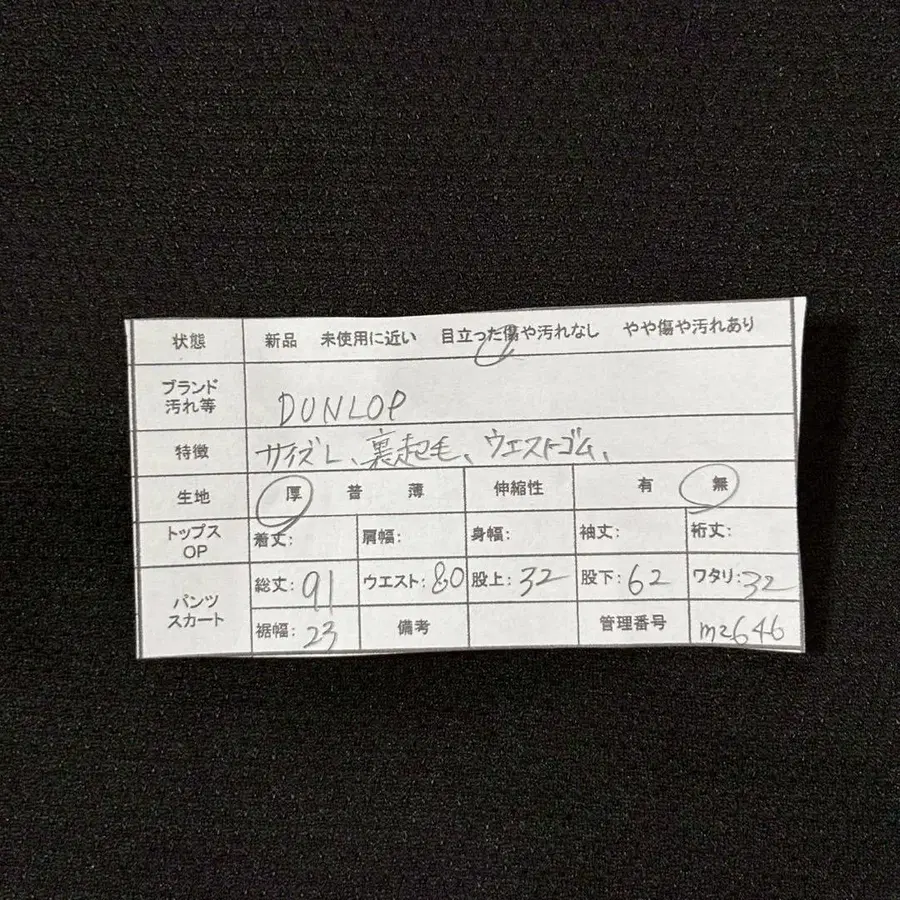 状態 新品 未使用に近い 目立った傷や汚れなし やや傷や汚れあり
ブランド
汚れ等 DUNLOP
特徴 サイズL、裏起毛、ウエストゴム、
生地 厚 普 薄 伸縮性 有 無
トップス
OP 着丈: 肩幅: 身幅: 袖丈: 裄丈:
パンツ
スカート
総丈:91 ウエスト:80 股上:32 股下:62 ワタリ:32
裾幅:23 備考 管理番号 m2646